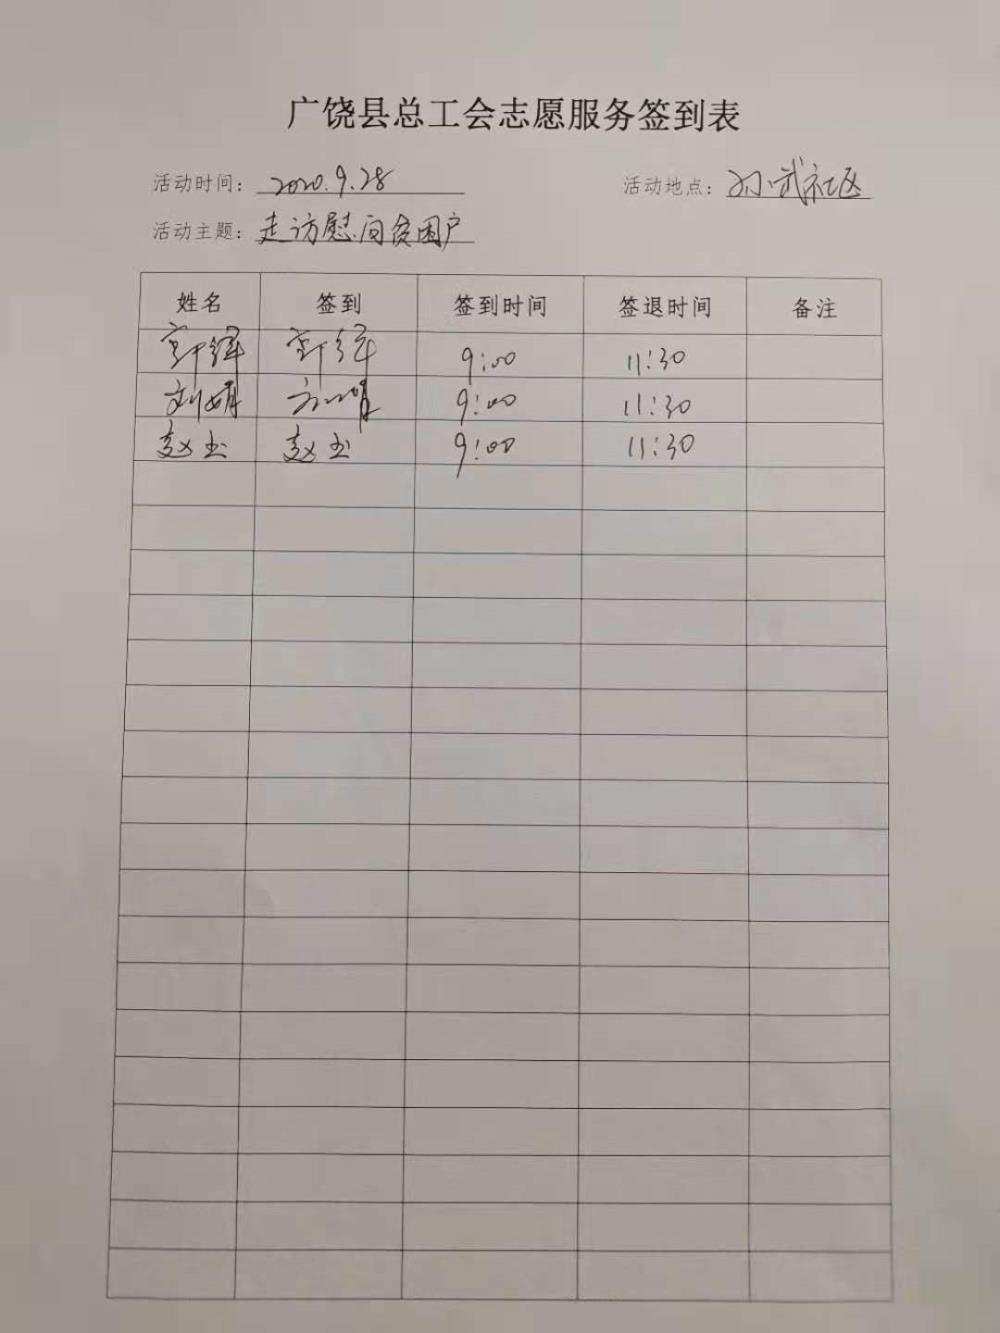 广饶县总工会志愿服务签到表
活动时间：2020.9.28 活动地点：孙武社区
活动主题：走访慰问贫困户
姓名 签到 签到时间 签退时间 备注
9:00 11:30
刘娟 刘娟 9:00 11:30
赵玉 赵玉 9:00 11:30